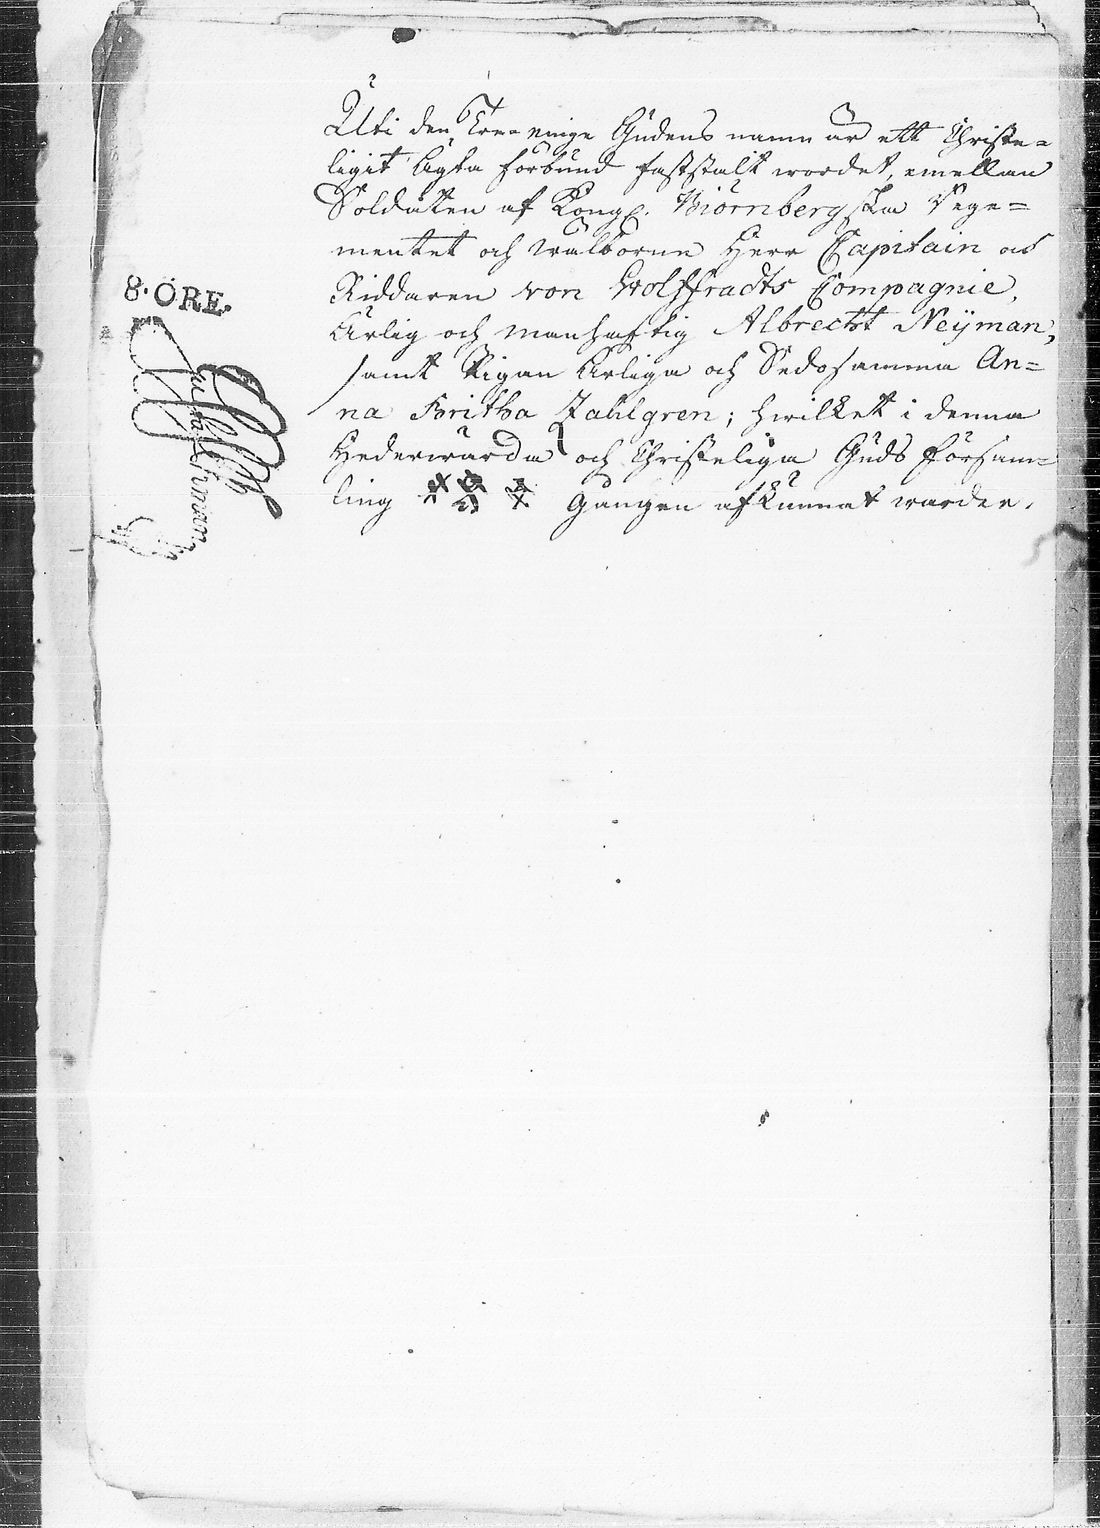 Uti den Tre-enige Gudens namn är ett Christe=
ligit Ägta förbund faststält wordet, emellan
Soldaten af Kongl. Biörnbergska Rege=
mentet och wälborne Herr Capitain och
Riddaren von Wolffradts Compagnie,
Ärlig och manhaftig Albrecht Neÿman,
samt Pigan Ärliga och Sedosamma An=
na Britha Zahlgren; hwilket i denna
Hederwärda och Christeliga Guds Försam=
ling Gången afkunnat warder.
8. ÖRE.